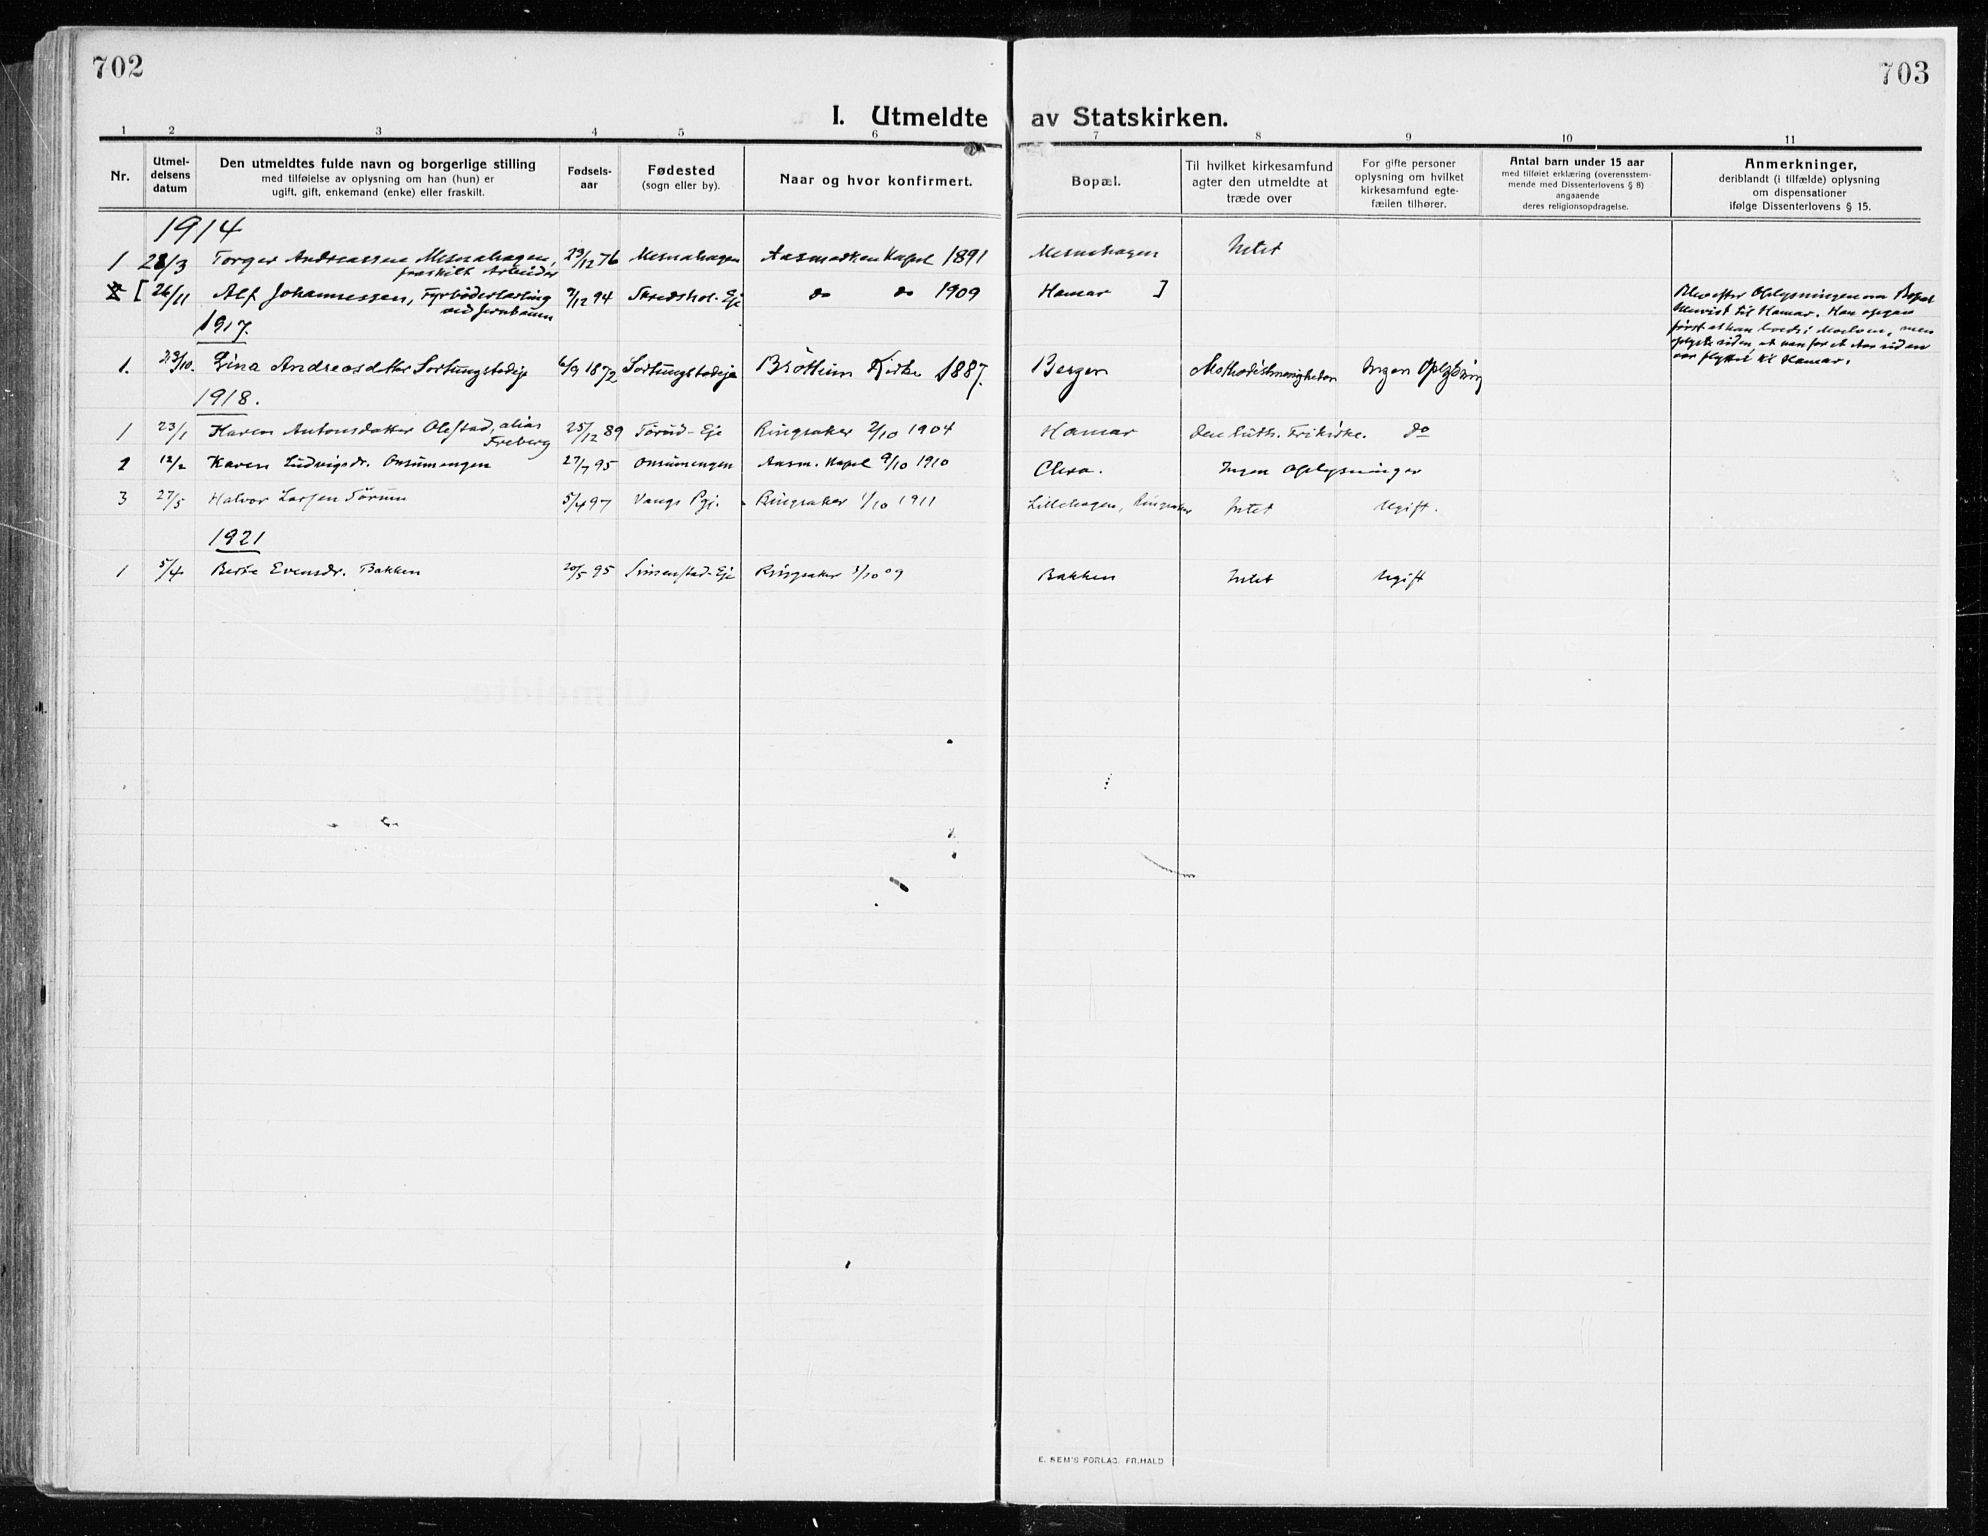 702
703
I. Utmeldte av Statskirken.
1 2 3 4 5 6 7 8 9 10 11
Nr.
Utmel-
delsens
datum
Den utmeldtes fulde navn og borgerlige stilling
med tilføielse av oplysning om han (hun) er
ugift, gift, enkemand (enke) eller fraskilt.
Fødsels-
aar
Fødested
(sogn eller by).
Naar og hvor konfirmert.
Bopæl.
Til hvilket kirkesamfund
agter den utmeldte at
træde over
For gifte personer
oplysning om hvilket
kirkesamfund egte-
fællen tilhører.
Antal barn under 15 aar
med tilføiet erklæring (overensstem-
mende med Dissenterlovens § 8)
angaaende
deres religionsopdragelse.
Anmerkninger,
deriblandt (i tilfælde) oplysning
om dispensationer
ifølge Dissenterlovens § 15.
1914
1 28/3 Torger Andreassen Mesnahagen, 29/12 76 Mesnahagen Aasmarken Kapel 1891 Mesnahagen Intet
fraskilt Arbeider
[ 26/11 Alf Johannessen, Fyrbøderlærling 9/12 94 Skredshol-Eje do do 1909 Hamar ]
ved Jernbanen
Blev efter Oplysningen om Bopæl
henvist til Hamar. Han opgav
først at han boede i Moelven, men
oplyste siden, at han for et Aar siden
var flyttet til Hamar.
1917.
1. 23/10. Lina Andreasdtter Sortungstadeje 6/9 1872 Sortungstadeje Brøttum Kirke 1887. Bergen Methodistmenigheten Ingen Oplysning
1918.
1 23/1 Karen Antonsdatter Olestad, alias 25/12 89 Tørud-Eje Ringsaker 2/10 1904 Hamar Den luth. Frikirke. do
Freberg
2 12/2 Karen Ludvigsdr. Onsumengen 27/7 95 Onsumengen Aasm. Kapel 9/10 1910 Ingen Oplysninger
3 27/5 Halvor Larsen Sørum 5/4 97 Vangs Pgj. Ringsaker 1/10 1911 Lillehagen, Ringsaker Intet Ugift.
1921
1 5/4 Berte Evensdr. Bakken 20/5 95 Ringsaker 3/10 09 Bakken Intet Ugift
E. SEM'S FORLAG. FR.HALD